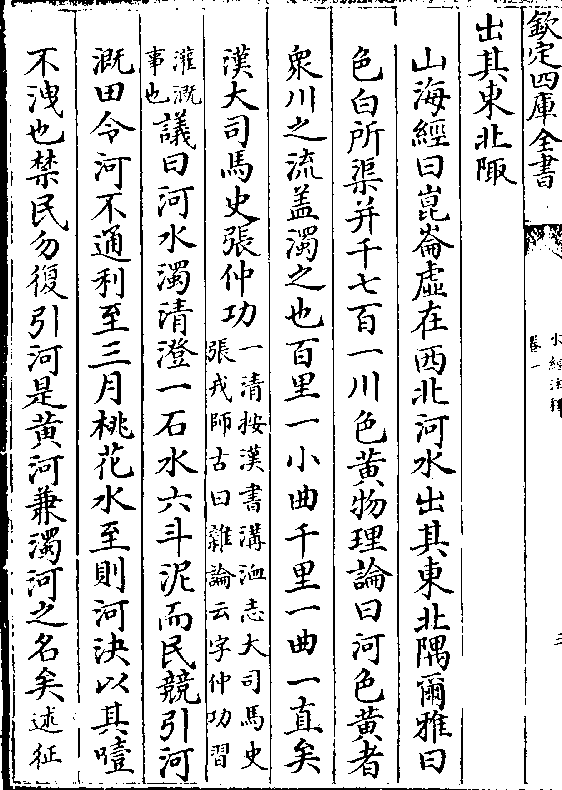 欽定四庫全書
水經注釋
卷一
出其東北陬
山海經曰崑崙虛在西北河水出其東北隅爾雅曰
色白所渠并千七百一川色黄物理論曰河色黄者
衆川之流盖濁之也百里一小曲千里一曲一直矣
漢大司馬史張仲功一清按漢書溝洫志大司馬史張戎師古曰雜論云字仲功習
灌溉事也議曰河水濁清澄一石水六斗泥而民競引河
溉田令河不通利至三月桃花水至則河決以其噎
不洩也禁民勿復引河是黄河兼濁河之名矣述征